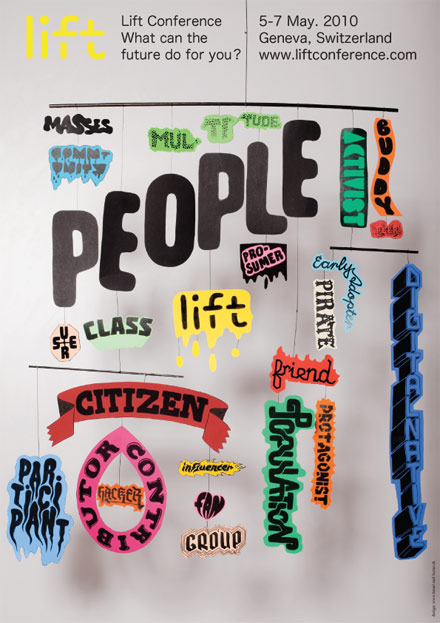 lift
Lift Conference
What can the
future do for you?
5-7 May. 2010
Geneva, Switzerland
www.liftconference.com
MASSES
MUL
TI
TUDE
ACTIVIST
BUDDY
PEOPLE
PRO-
SUMER
Early Adopter
PIRATE
DIGITAL NATIVE
lift
US-
ER
CLASS
friend
CITIZEN
POPULATION
PROTAGONIST
PAR
TICI
PANT
CONTRIBUTOR
HACKER
influencer
FAN
GROUP